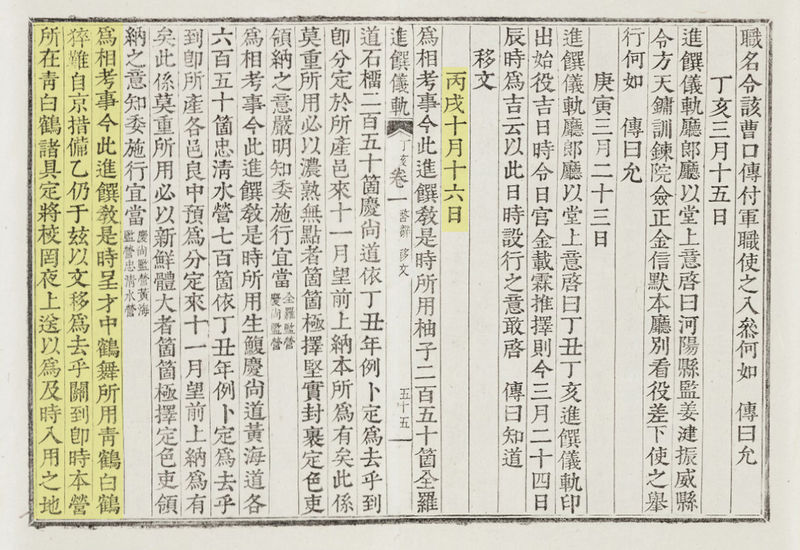 職名令該曹口傳付軍職使之入叅何如　傳曰允
丁亥三月十五日
進饌儀軌廳郎廳以堂上意啓曰河陽縣監姜湕振威縣
令方天鏞訓鍊院僉正金信默本廳別看役差下使之擧
行何如　傳曰允
庚寅三月二十三日
進饌儀軌廳郎廳以堂上意啓曰丁丑丁亥進饌儀軌印
出始役吉日時令日官金載霖推擇則今三月二十四日
辰時爲吉云以此日時設行之意敢啓　傳曰知道
移文
丙戌十月十六日
爲相考事今此進饌敎是時所用柚子二百五十箇全羅
進饌儀軌 丁亥 卷一 啓辭 移文 五十五
道石橊二百五十箇慶尙道依丁丑年例卜定爲去乎到
卽分定於所產邑來十一月望前上納本所爲有矣此係
莫重所用必以濃熟無點者箇箇極擇堅實封裹定色吏
領納之意嚴明知委施行宜當 全羅監營 慶尙監營
爲相考事今此進饌敎是時所用生鰒慶尙道黃海道各
六百五十箇忠淸水營七百箇依丁丑年例卜定爲去乎
到卽所產各邑良中預爲分定來十一月望前上納爲有
矣此係莫重所用必以新鮮體大者箇箇極擇定色吏領
納之意知委施行宜當 慶尙監營黃海監營忠淸水營
爲相考事今此進饌敎是時呈才中鶴舞所用靑鶴白鶴
猝難自京措備乙仍于玆以文移爲去乎關到卽時本營
所在靑白鶴諸具定將校罔夜上送以爲及時入用之地